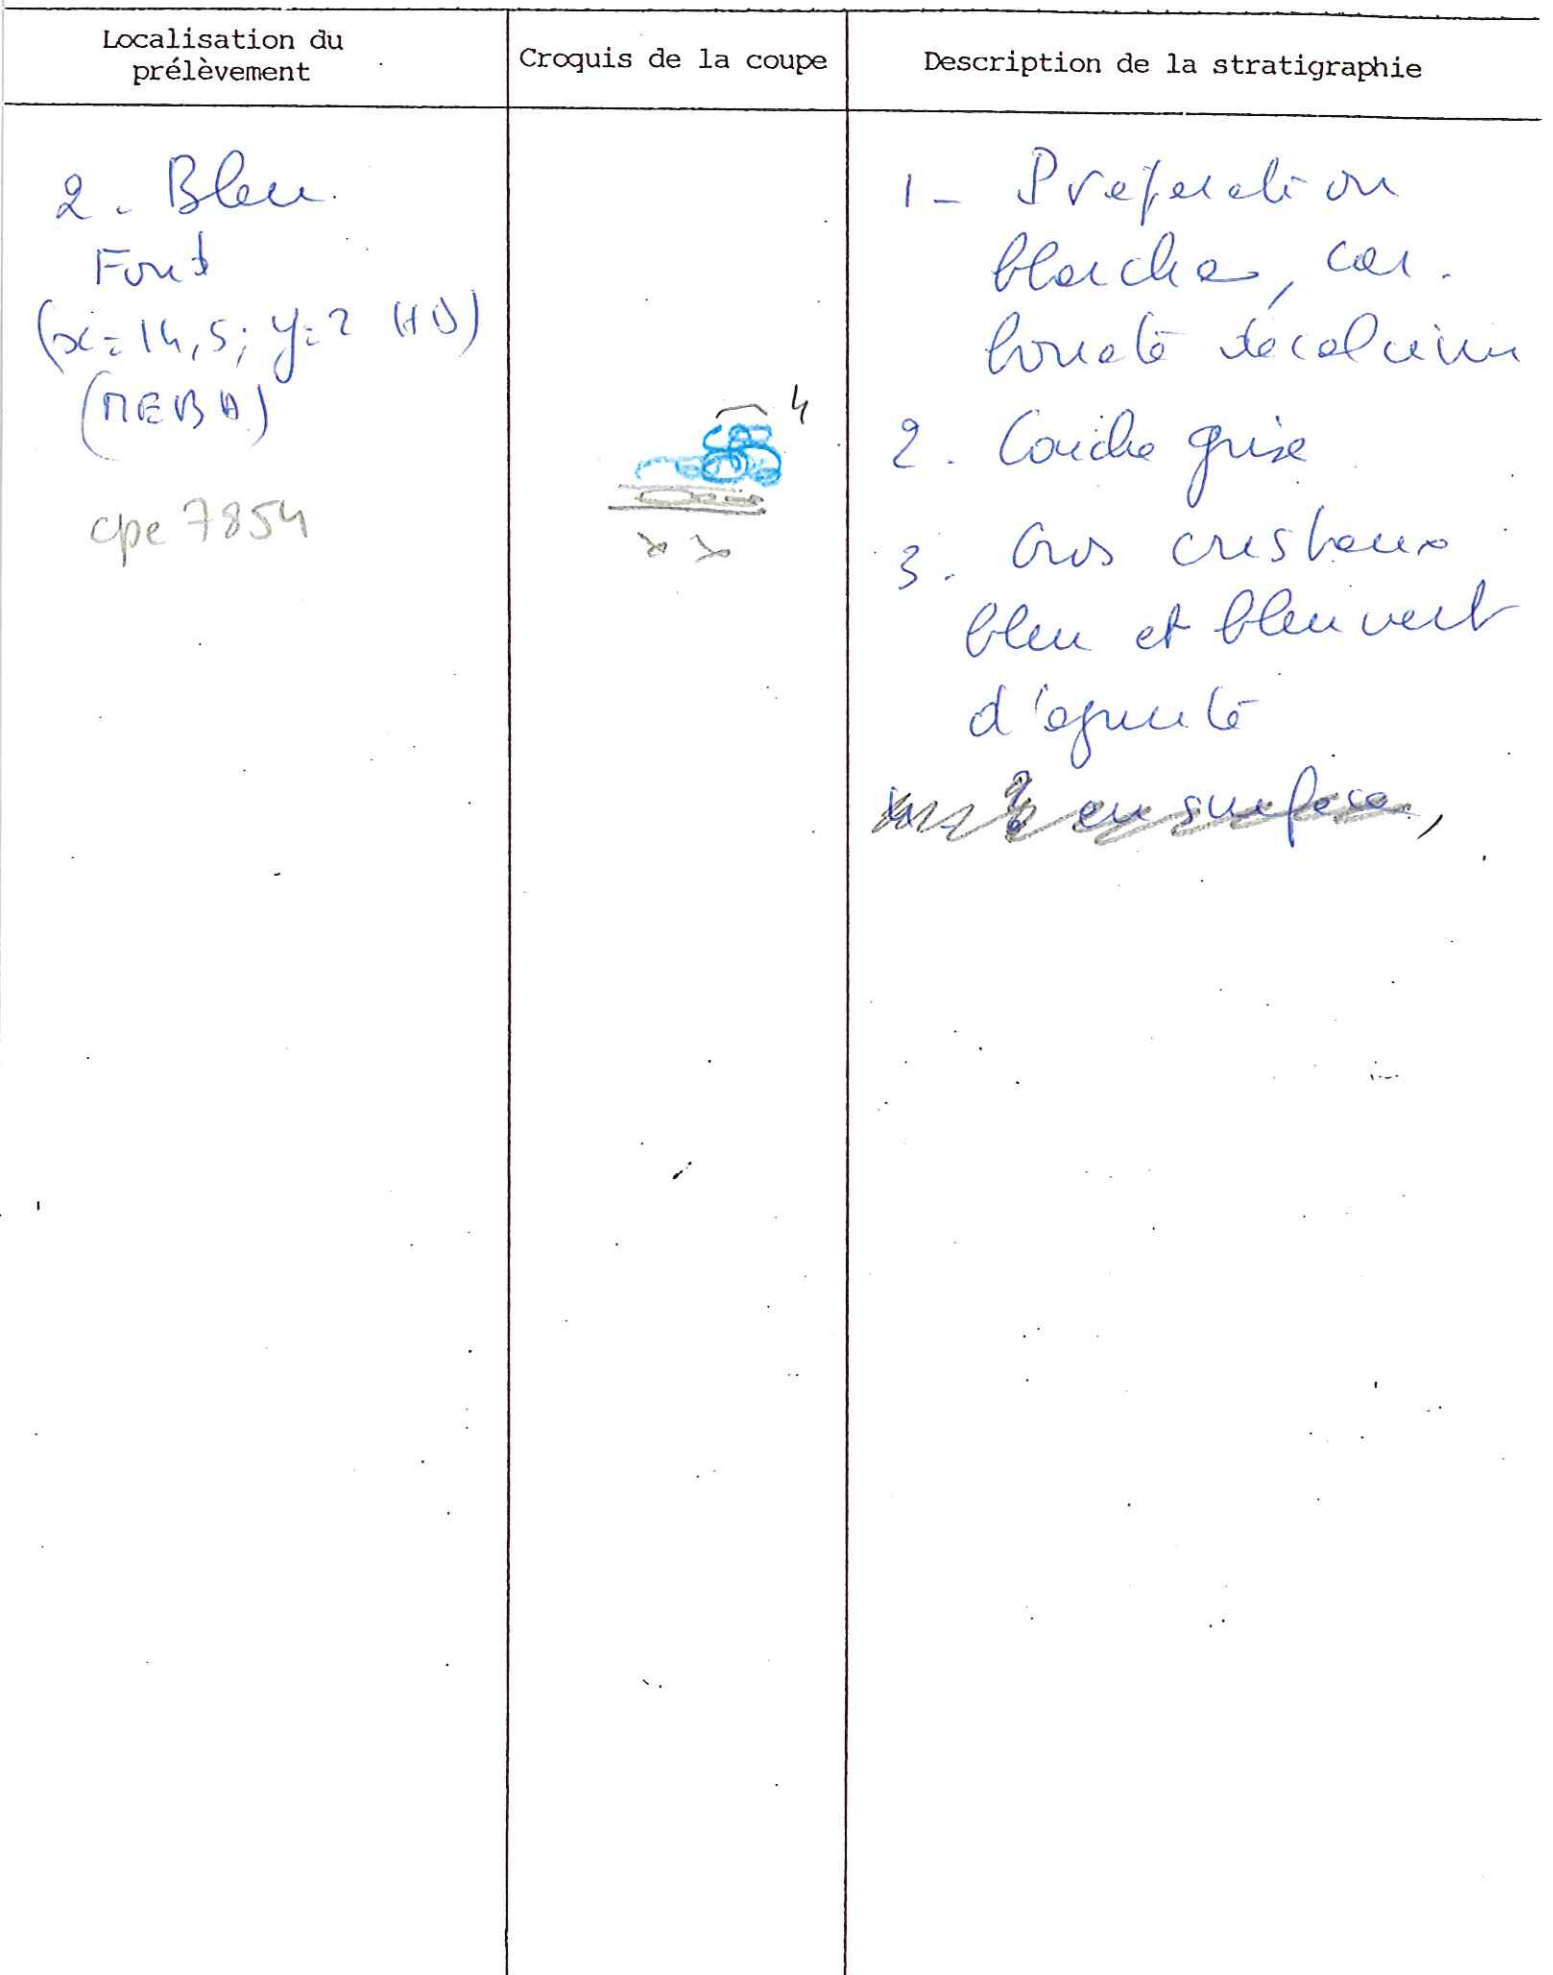 Localisation du
prélèvement
Croquis de la coupe
Description de la stratigraphie
2. Bleu.
Fond
(x=14,5; y=2 HD)
(MEBA)
cpe 7854
4
1- Préparation
blanche, car.
bonate de calcium
2. Couche grise
3. Gros cristaux
bleu et bleu vert
d'azurite
4. ? en surface,